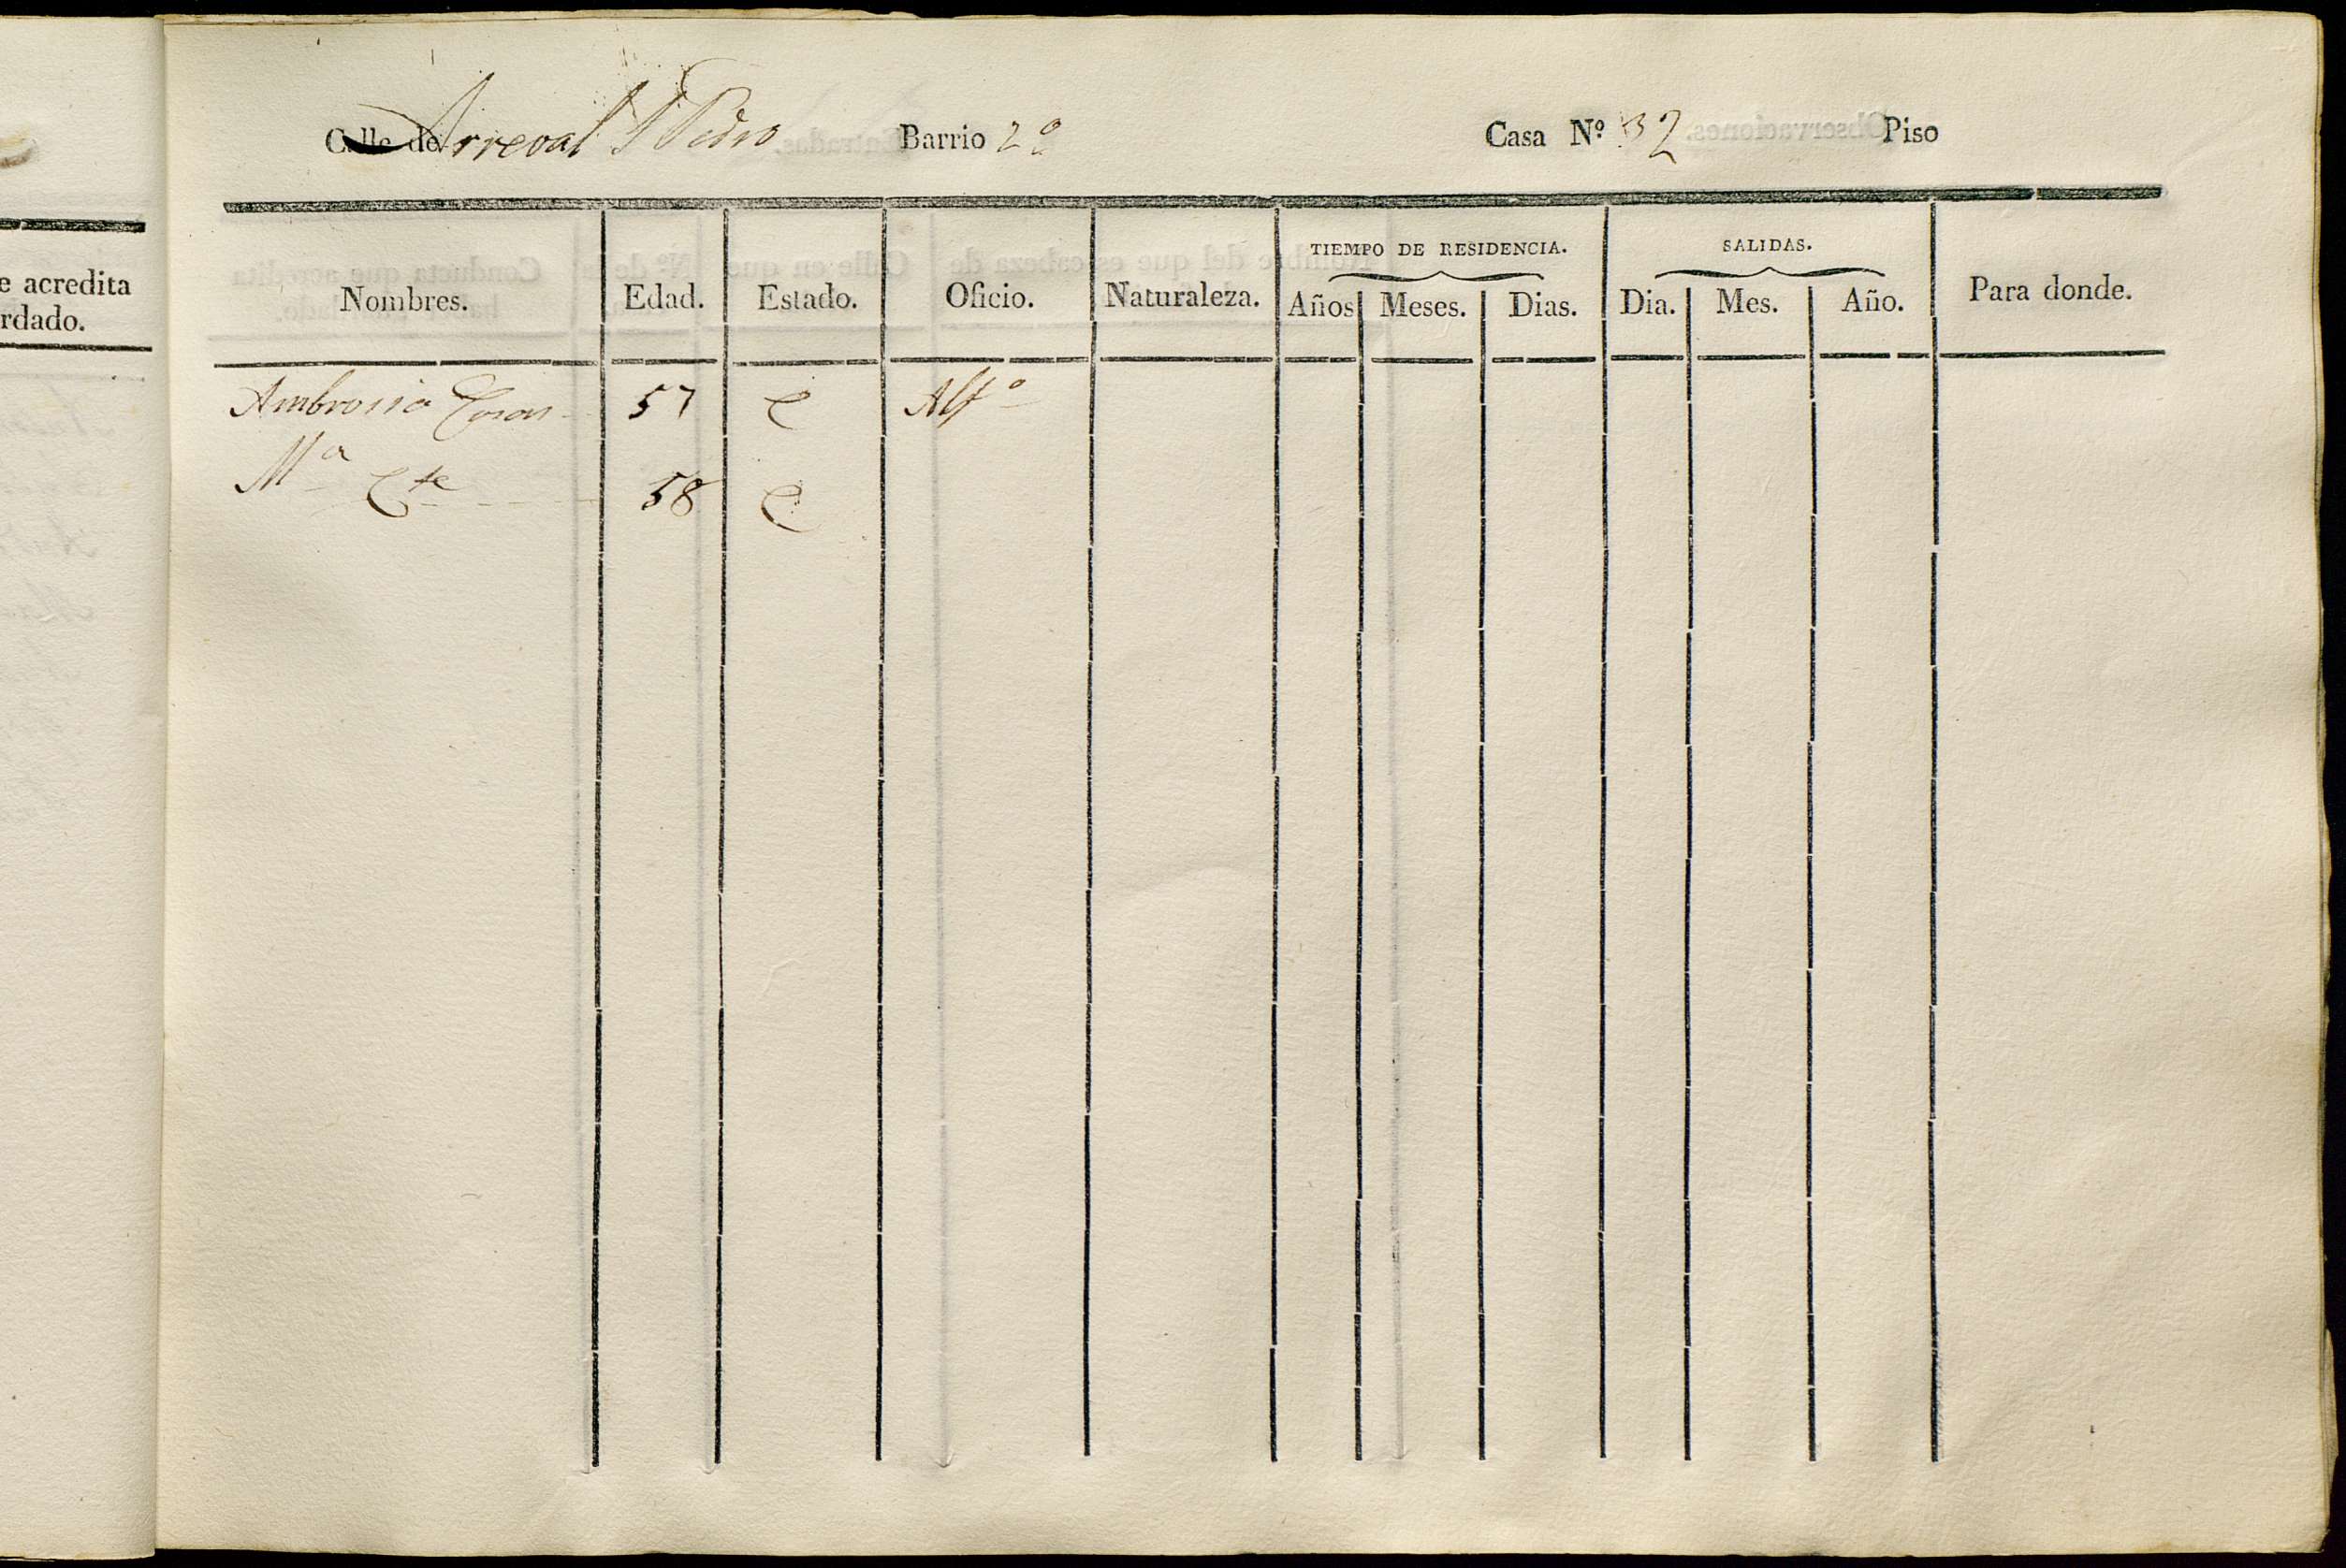 e acredita
rdado.
Calle de Arreval S Pedro Barrio 2º Casa Nº 32 Piso
TIEMPO DE RESIDENCIA. SALIDAS.
Nombres. Edad. Estado. Oficio. Naturaleza. Años Meses. Dias. Dia. Mes. Año. Para donde.
Ambrosio 57 C Alfº
Mª Cte 58 C